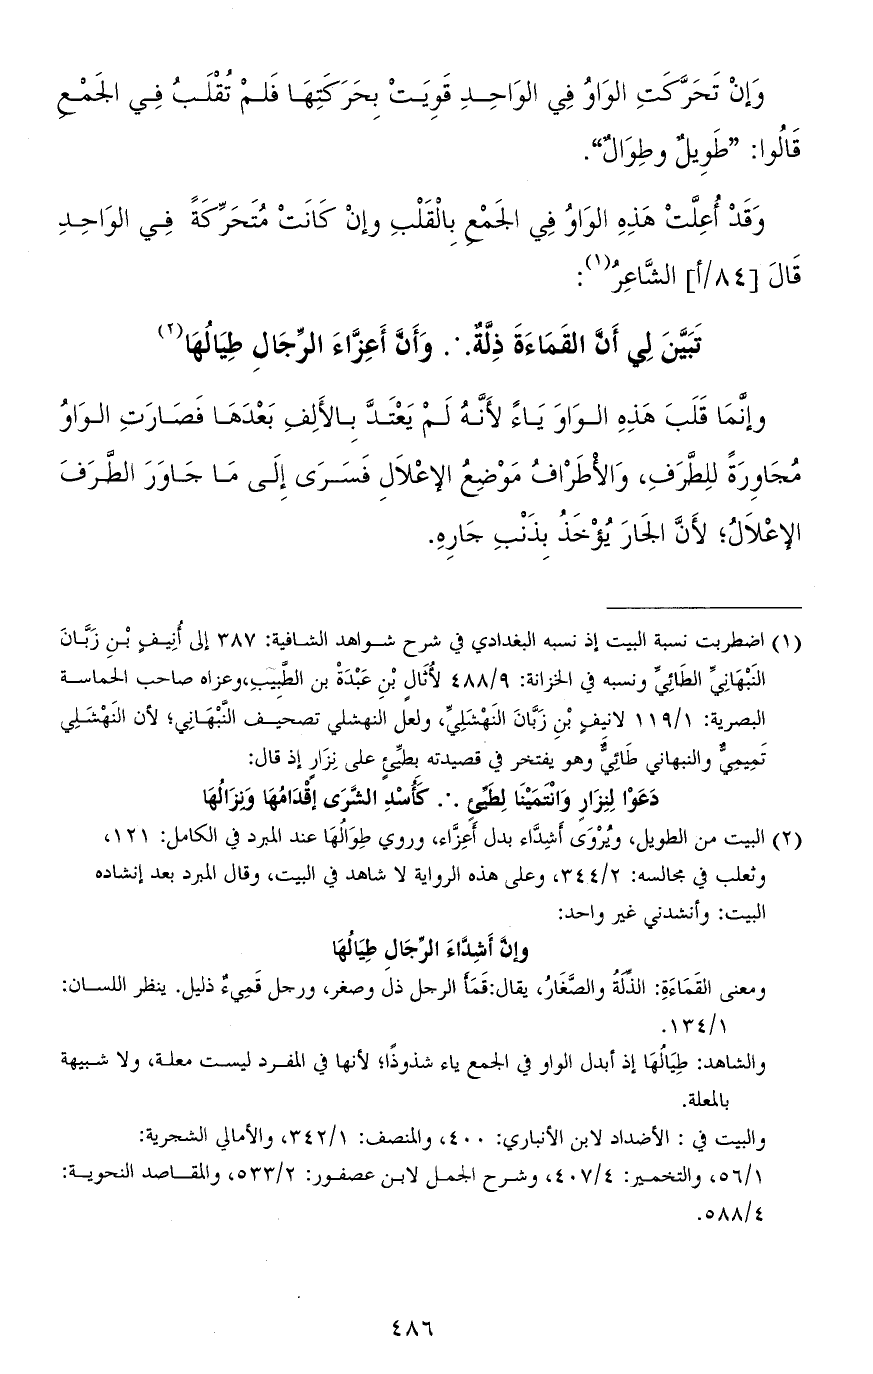 وَإِنْ تَحَرَّكَتِ الوَاوُ فِي الوَاحِدِ قَوِيَتْ بِحَرَكَتِهَا فَلَمْ تُقْلَبُ فِي الجَمْعِ
قَالُوا: ”طَوِيلٌ وطِوَالٌ“.
وَقَدْ أُعِلَّتْ هَذِهِ الوَاوُ فِي الجَمْعِ بِالْقَلْبِ وإنْ كَانَتْ مُتَحَرِّكَةً فِي الوَاحِدِ
قَالَ [٨٤/أ] الشَّاعِرُ(١):
تَبَيَّنَ لِي أَنَّ القَمَاءَةَ ذِلَّةٌ.·. وَأَنَّ أَعِزَّاءَ الرِّجَالِ طِيَالُهَا(٢)
وإِنَّمَا قَلَبَ هَذِهِ الوَاوَ يَاءً لأَنَّهُ لَمْ يَعْتَدَّ بِالأَلِفِ بَعْدَهَا فَصَارَتِ الوَاوُ
مُجَاوِرَةً لِلطَّرَفِ، وَالأَطْرَافُ مَوْضِعُ الإِعْلَالِ فَسَرَى إِلَى مَا جَاوَرَ الطَّرَفَ
الإِعْلَالُ؛ لأَنَّ الجَارَ يُؤْخَذُ بِذَنْبِ جَارِهِ.
(١) اضطربت نسبة البيت إذ نسبه البغدادي في شرح شواهد الشافية: ٣٨٧ إلى أُنِيفِ بْنِ زَبَّانَ
النَبْهَانِيِّ الطَائِيِّ ونسبه في الخزانة: ٤٨٨/٩ لأُثَالِ بْنِ عَبْدَةْ بن الطَّبِيبِ،وعزاه صاحب الحماسة
البصرية: ١١٩/١ لانيفٍ بْنِ زَبَّانَ النَهْشَلِيِّ، ولعل النهشلي تصحيف النَّبْهَانِي؛ لأن النَهْشَلِي
تَمِيمِيٌّ والنبهاني طَائِيٌّ وهو يفتخر في قصيدته بِطَيِّئٍ على نِزَارٍ إذ قال:
دَعَوْا لِنِزَارٍ وَانْتَمَيْنَا لِطَيِّئٍ .·. كَأُسْدِ الشَّرَى إِقْدَامُهَا وَنِزَالُهَا
(٢) البيت من الطويل، ويُرْوَى أَشِدَّاء بدل أَعِزَّاء، وروي طِوَالُهَا عند المبرد في الكامل: ١٢١،
وثعلب في مجالسه: ٣٤٤/٢، وعلى هذه الرواية لا شاهد في البيت، وقال المبرد بعد إنشاده
البيت: وأنشدني غير واحد:
وإنَّ أَشِدَّاءَ الرِّجَالِ طِيَالُهَا
ومعنى القَمَاءَةِ: الذِّلَّةُ والصَّغَارُ، يقال:قَمَأَ الرجل ذل وصغر، ورجل قَمِيءٌ ذليل. ينظر اللسان:
١٣٤/١.
والشاهد: طِيَالُهَا إذ أبدل الواو في الجمع ياء شذوذًا؛ لأنها في المفرد ليست معلة، ولا شبيهة
بالمعلة.
والبيت في : الأضداد لابن الأنباري: ٤٠٠، والمنصف: ٣٤٢/١، والأمالي الشجرية:
٥٦/١، والتخمير: ٤٠٧/٤، وشرح الجمل لابن عصفور: ٥٣٣/٢، والمقاصد النحوية:
٥٨٨/٤.
٤٨٦